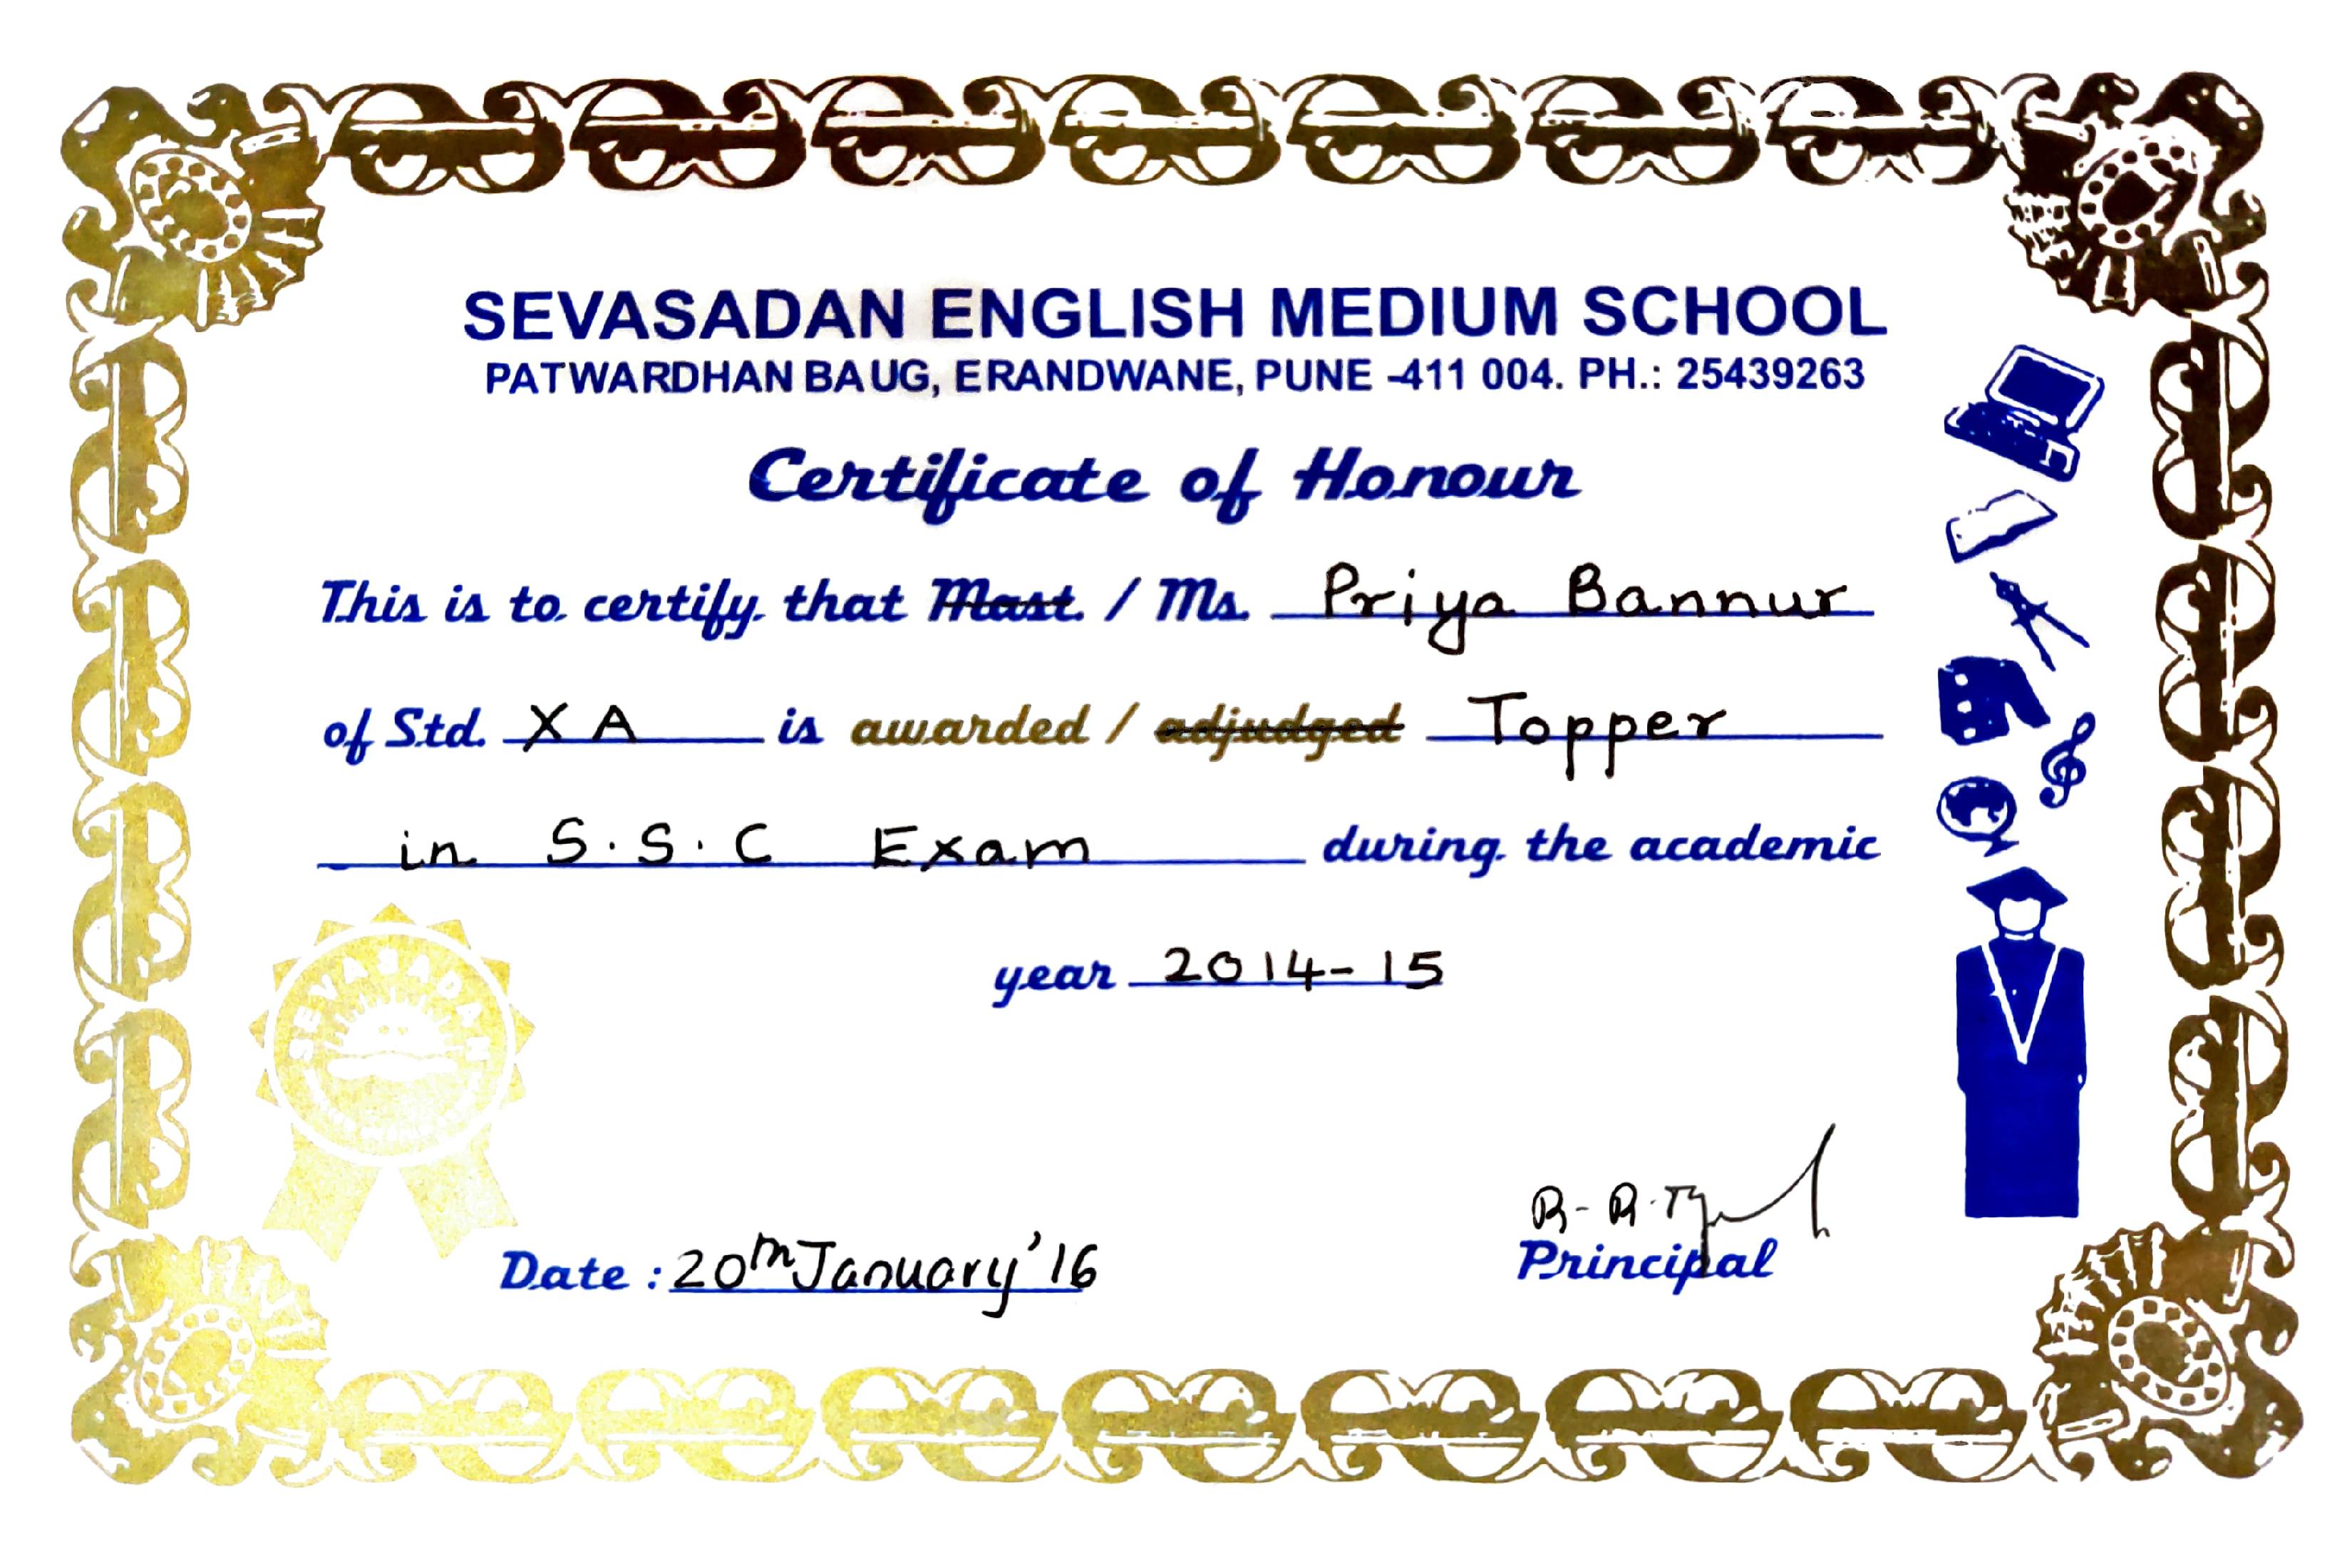 SEVASADAN ENGLISH MEDIUM SCHOOL
PATWARDHAN BAUG, ERANDWANE, PUNE -411 004. PH.: 25439263
Certificate of Honour
This is to certify that Mast. / Ms. Priya Bannur
of Std. X A is awarded / adjudged Topper
in S.S.C Exam during the academic
year 2014-15
SEVASADAN
Date : 20th January '16
Principal